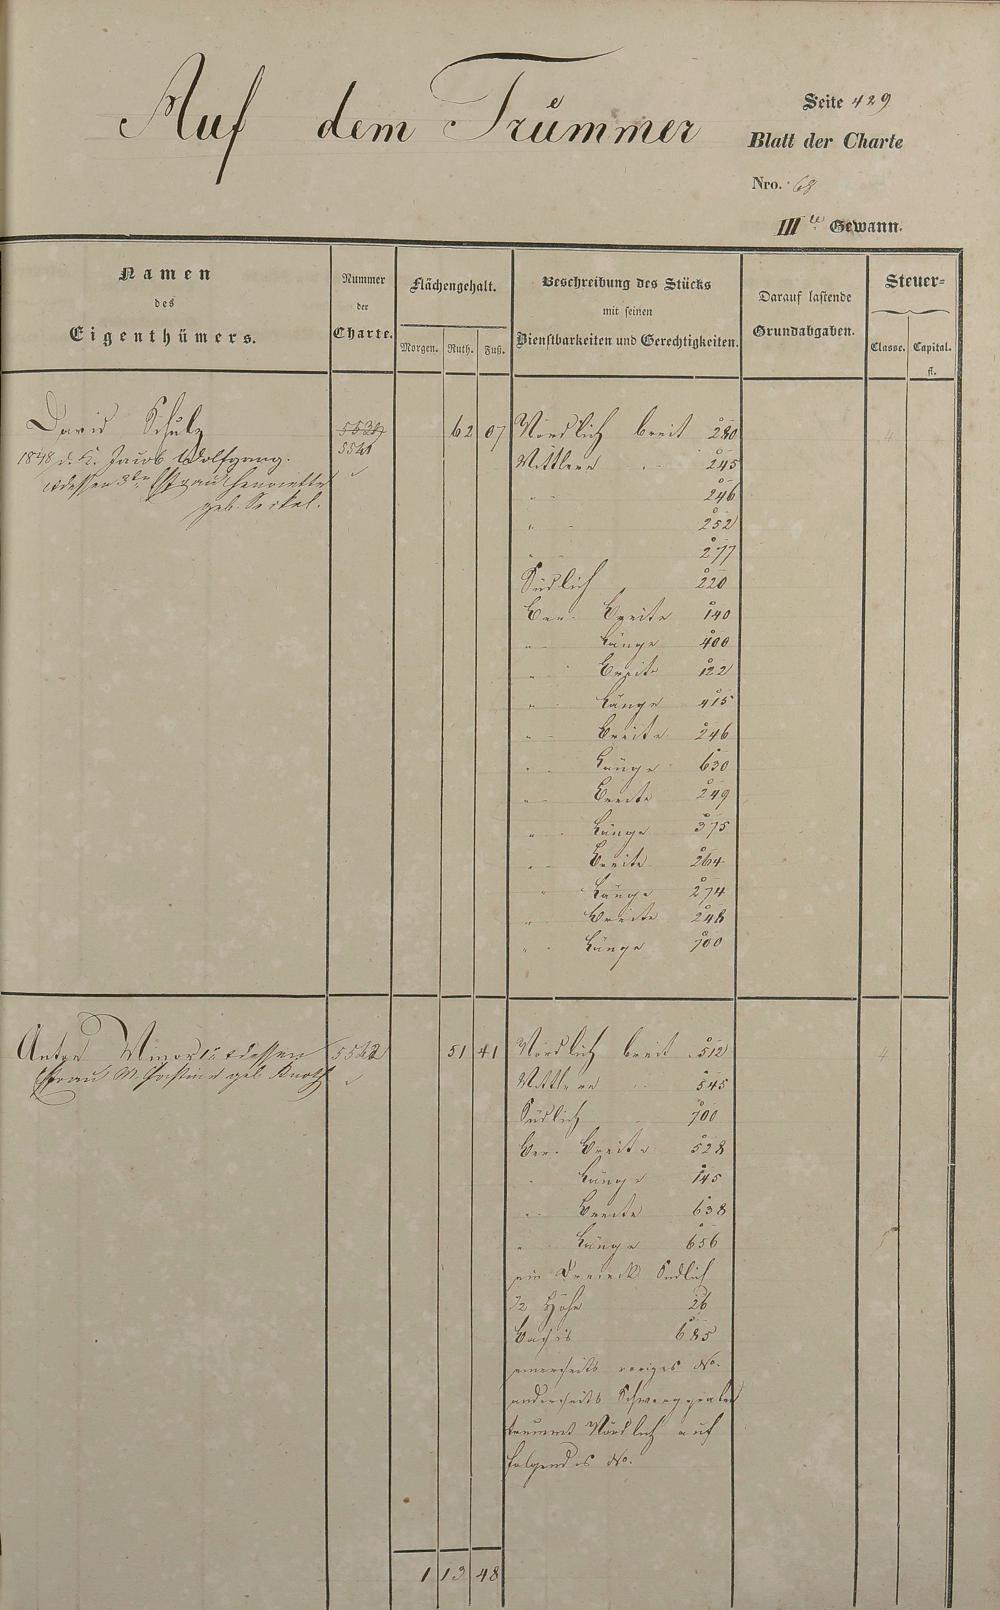 Auf dem Trümmer
Seite 429
Blatt der Charte
Nro. 68
III te Gewann.
Namen
des
Eigenthümers.
Nummer
der
Charte.
Flächengehalt.
Morgen. Ruth. Fuß.
Beschreibung des Stücks
mit seinen
Dienstbarkeiten und Gerechtigkeiten.
Darauf lastende
Grundabgaben.
Steuer=
Classe. Capital.
fl.
David Schulz 62 07 Nördlich breit 280
1848 d. K. Jacob Wolfgang. 5521 Mittlere " 245
u dessen 3te Ehefrau Henriette " 246
geb. " 252
" 277
Südlich 220
Ver. Breite 140
" Länge 400
" Breite 122
" Länge 415
" Breite 246
" Länge 630
" Breite 249
" Länge 375
" Breite 264
" Länge 274
" Breite 248
" Länge 700
Anton dessen 5522 51 41 Nördlich breit 512 4
Ehefrau geb. Knoth Mittlere " 545
Südlich 700
Ver. Breite 528
" Länge 145
" Breite 638
" Länge 656
ein Dreieck Südlich
1/2 Höhe 26
Basis 685
einerseits voriges No.
anderseits
Nördlich auf
folgendes No.
1 13 48